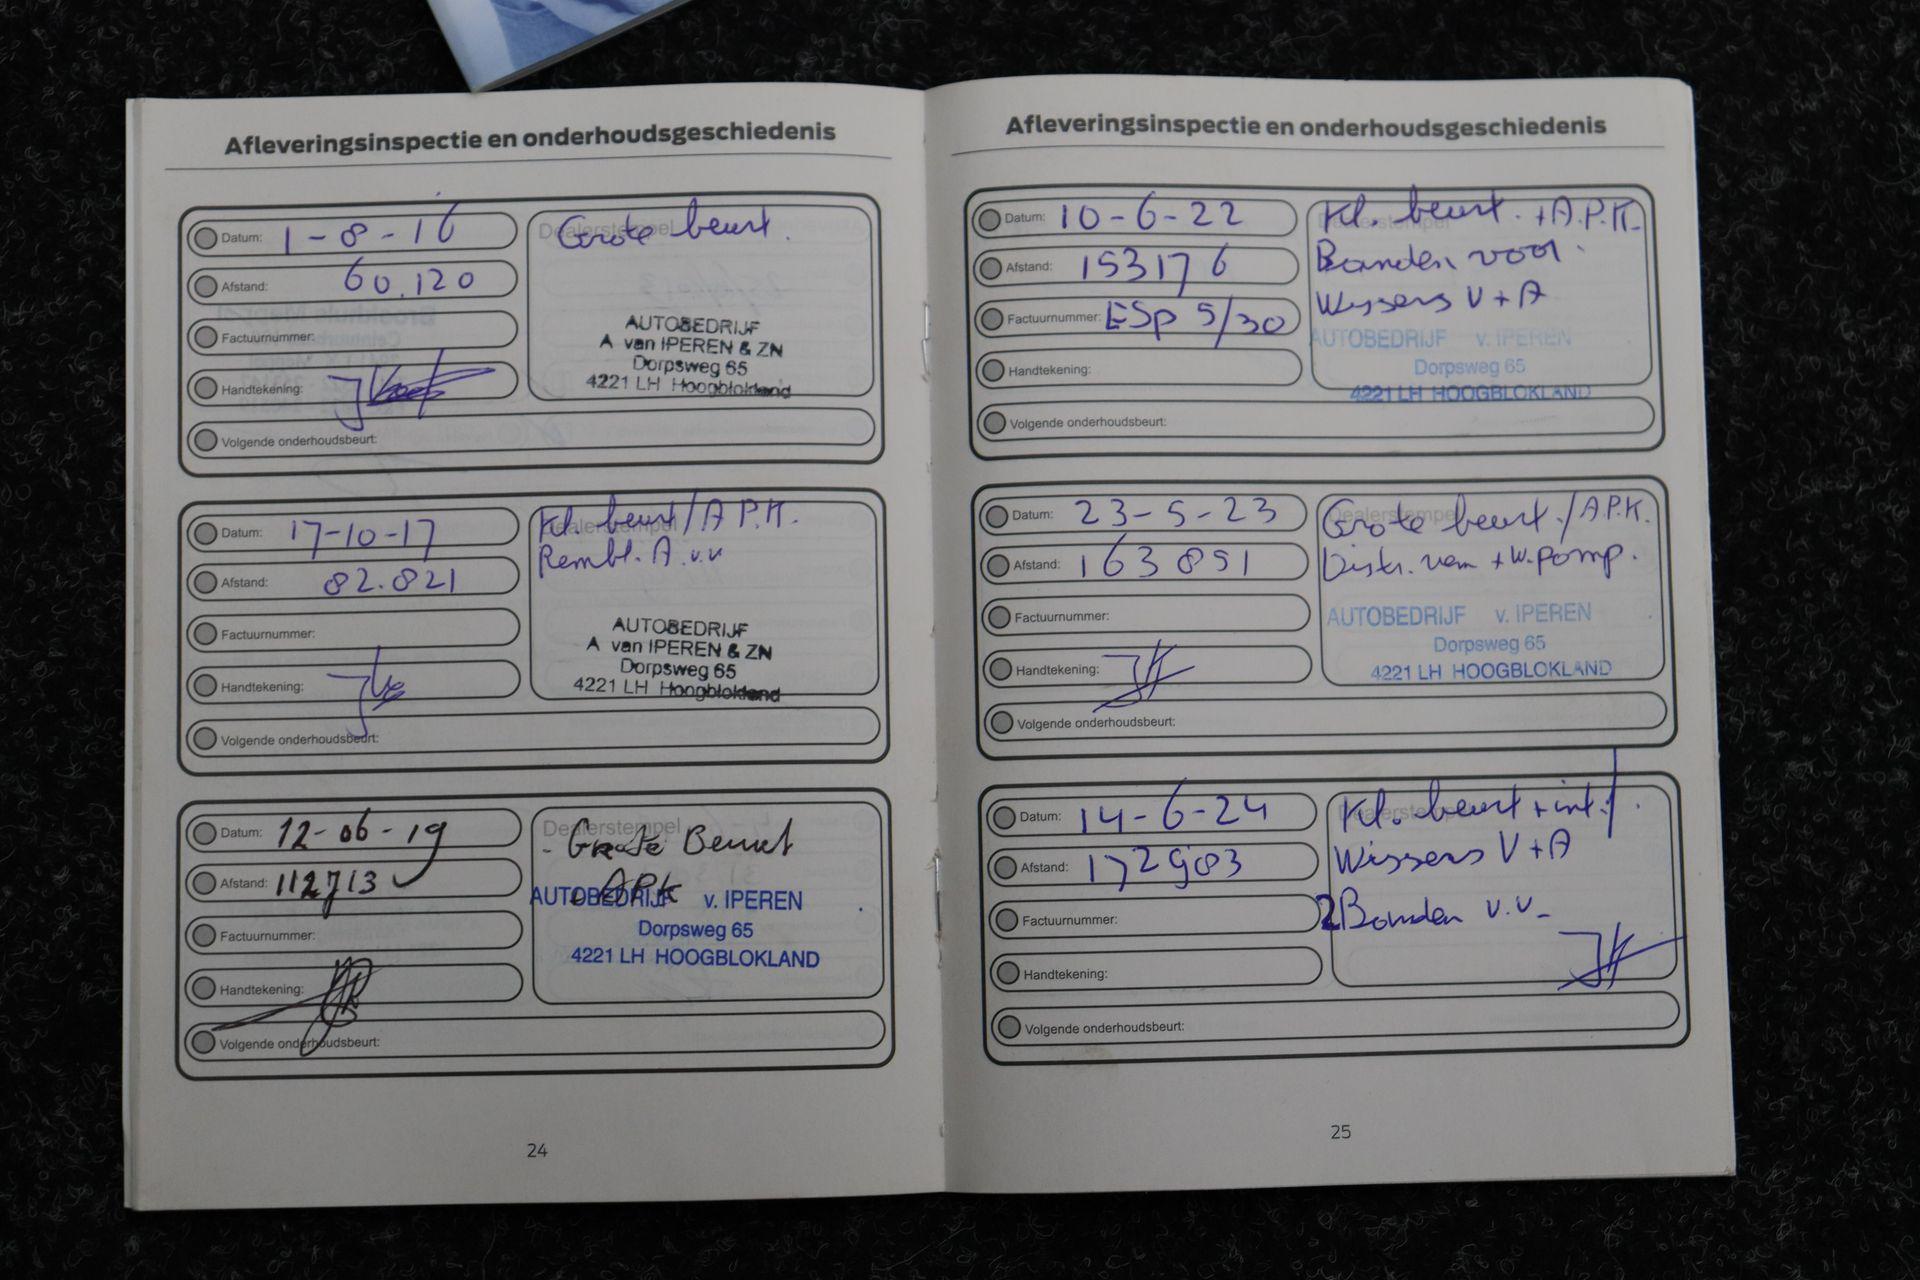 Afleveringsinspectie en onderhoudsgeschiedenis
Datum: 1-8-16
Afstand: 60.120
Factuurnummer:
Handtekening:
Volgende onderhoudsbeurt:
Dealerstempel
Grote beurt.
AUTOBEDRIJF
A van IPEREN & ZN
Dorpsweg 65
4221 LH Hoogblokland
Datum: 17-10-17
Afstand: 82.821
Factuurnummer:
Handtekening:
Volgende onderhoudsbeurt:
Dealerstempel
Kl. beurt/A.P.K.
Rembl. A. v.v
AUTOBEDRIJF
A van IPEREN & ZN
Dorpsweg 65
4221 LH Hoogblokland
Datum: 12-06-19
Afstand: 112713
Factuurnummer:
Handtekening:
Volgende onderhoudsbeurt:
Dealerstempel
- Grote Beurt
- APK
AUTOBEDRIJF v. IPEREN
Dorpsweg 65
4221 LH HOOGBLOKLAND
24
Afleveringsinspectie en onderhoudsgeschiedenis
Datum: 10-6-22
Afstand: 153176
Factuurnummer: ESP 5/30
Handtekening:
Volgende onderhoudsbeurt:
Dealerstempel
Kl. beurt. + A.P.K.
Banden voor.
Wissers V + A
AUTOBEDRIJF v. IPEREN
Dorpsweg 65
4221 LH HOOGBLOKLAND
Datum: 23-5-23
Afstand: 163891
Factuurnummer:
Handtekening:
Volgende onderhoudsbeurt:
Dealerstempel
Grote beurt./A.P.K.
Distr. riem + W.pomp.
AUTOBEDRIJF v. IPEREN
Dorpsweg 65
4221 LH HOOGBLOKLAND
Datum: 14-6-24
Afstand: 172903
Factuurnummer:
Handtekening:
Volgende onderhoudsbeurt:
Dealerstempel
Kl. beurt + int.f.
Wissers V + A
2 Banden v.v.
25